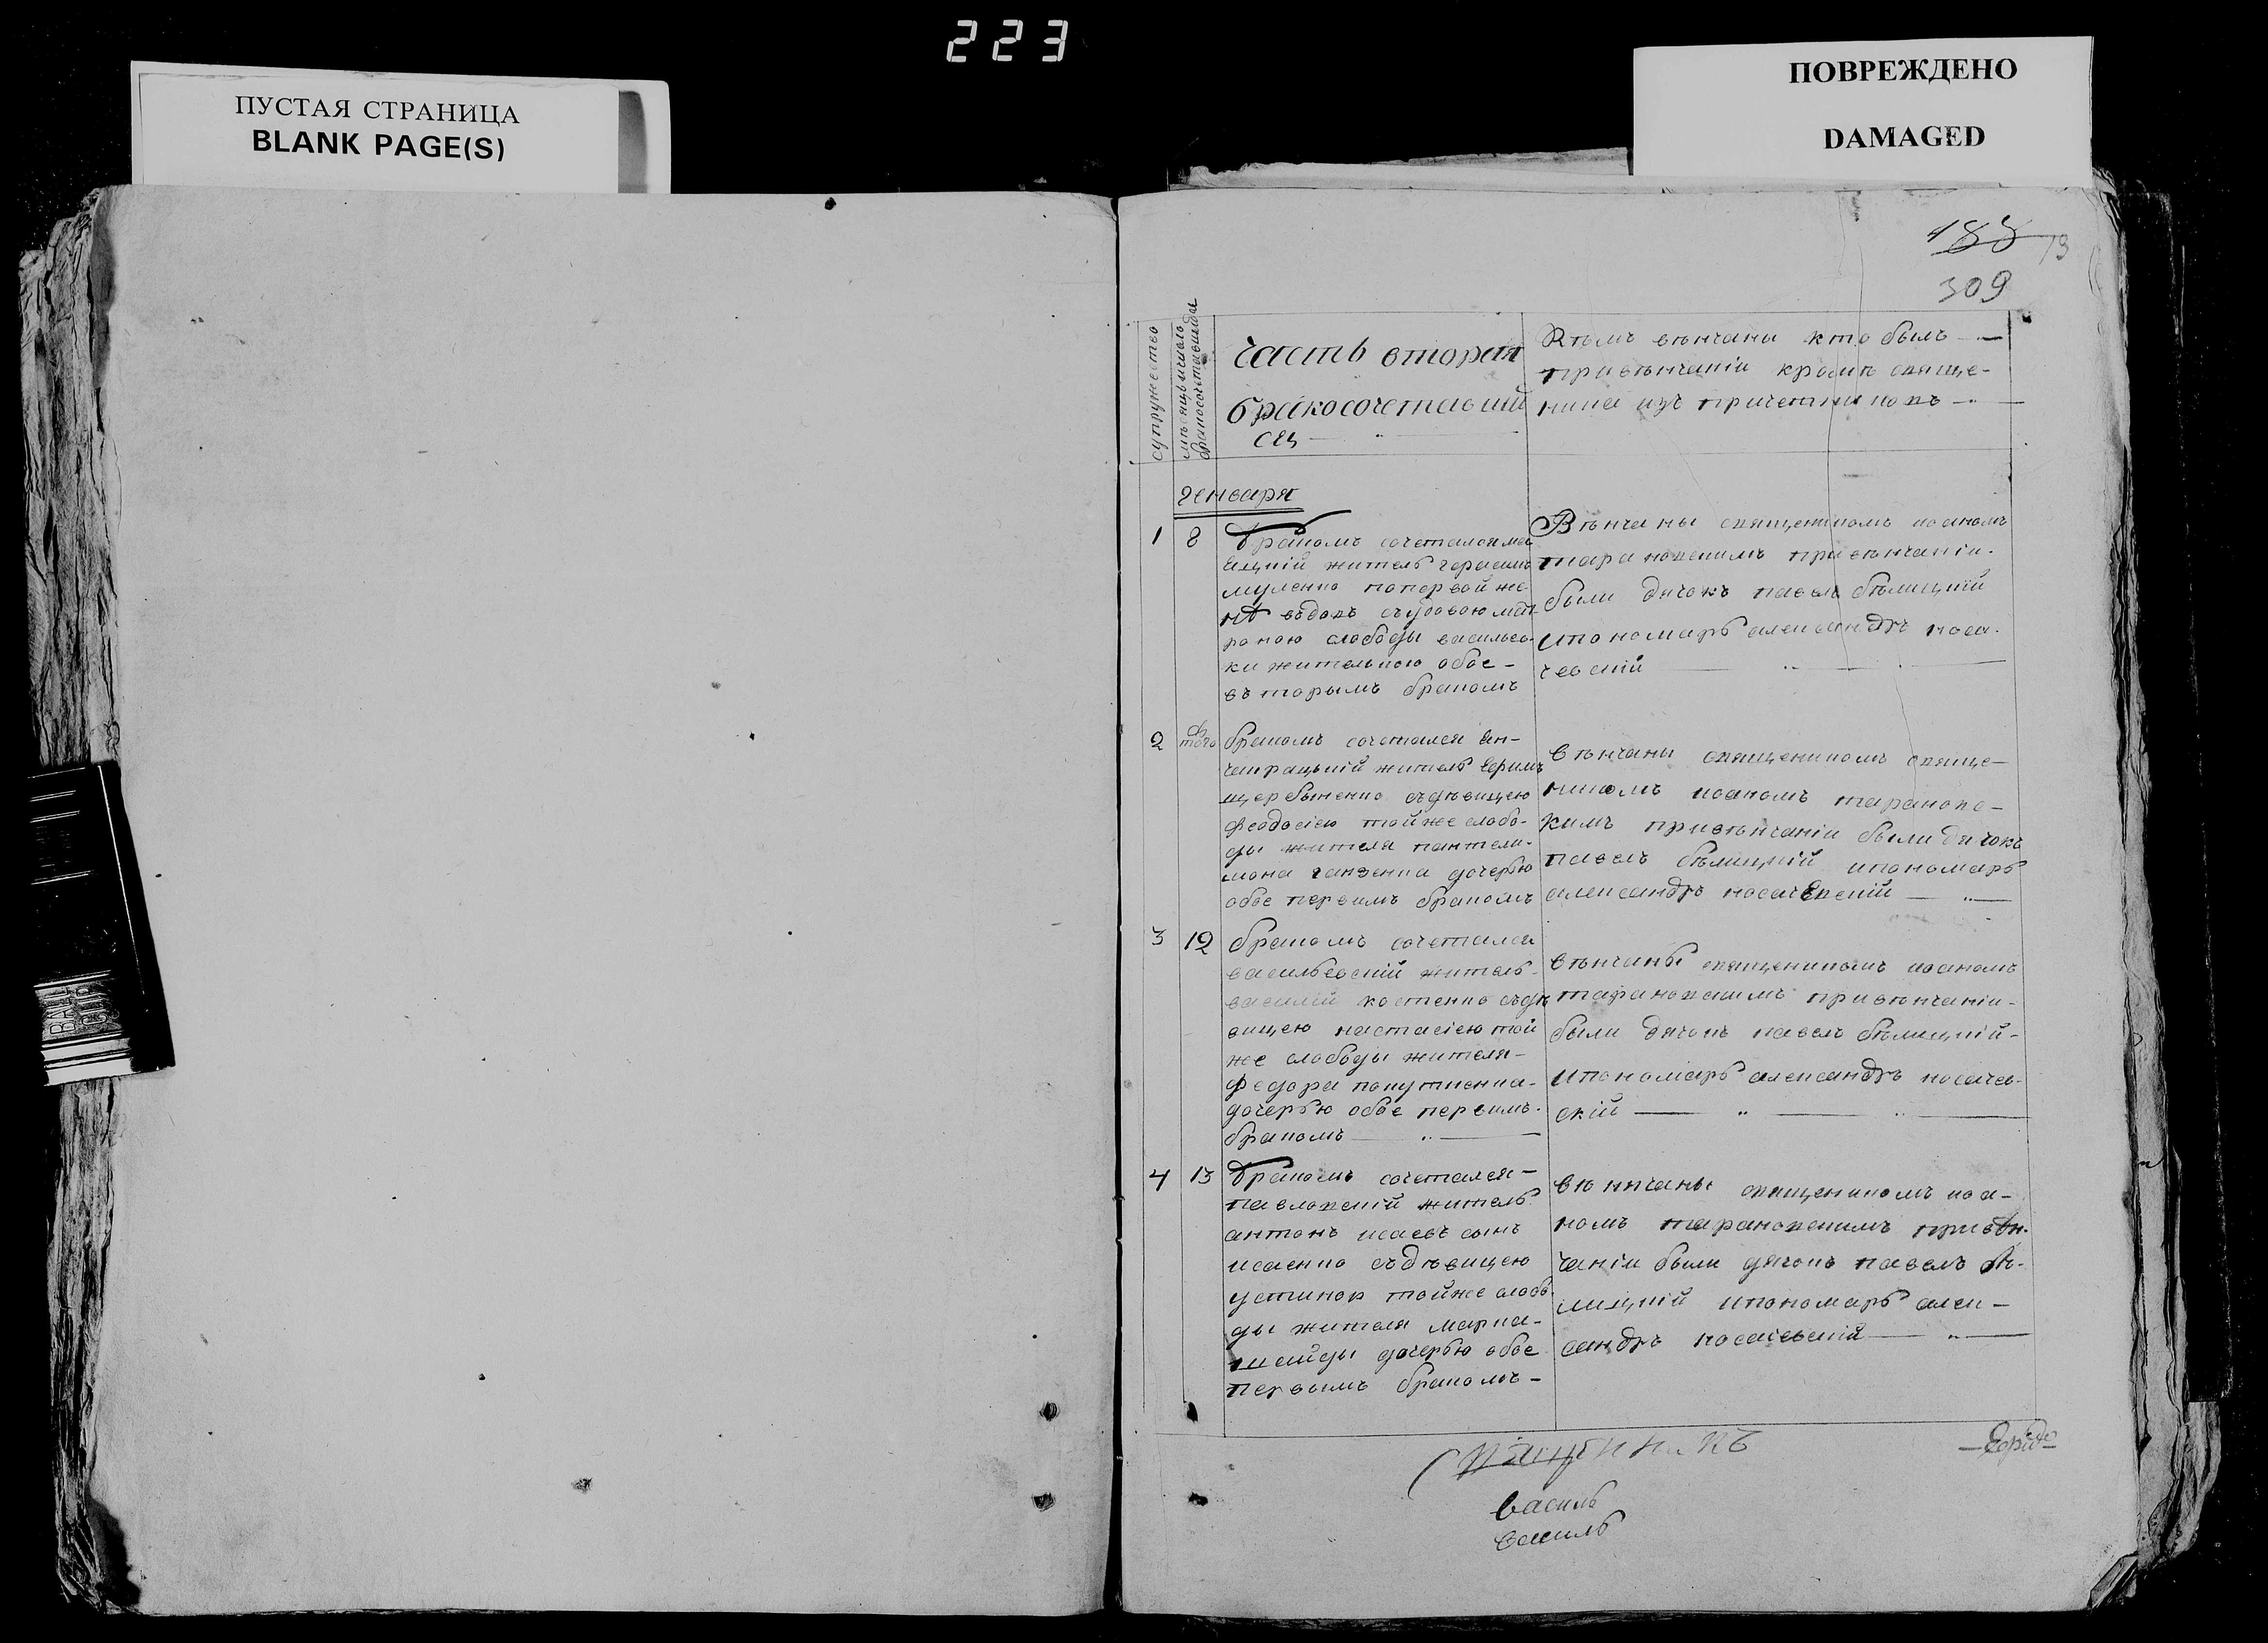 223
ПУСТАЯ СТРАНИЦА
BLANK PAGE(S)
ПОВРЕЖДЕНО
DAMAGED
188
309
супружество
часть вторая
бракосочетавший
ся
Кѣмъ вѣнчаны кто былъ
привѣнчаніи кромѣ свяще-
ника изъ причетниковъ
генваря
1 8
бракомъ сочетался
житель герасимъ
муленко попервой же
нѣ вдовъ
слободы васильев-
ки жителькою обое
въторымъ бракомъ
Вѣнчаны священикомъ иоаномъ
тарановскимъ привѣнчаніи
были дячокъ павелъ бѣлицкій
ипономаръ александръ носа-
чевскій
2 того
бракомъ сочетался
житель
съдѣвицею
феодосіею тойже слобо-
ды жителя пантели-
мона дочерью
обое первимъ бракомъ
вѣнчаны священикомъ свяще-
никомъ иоаномъ тарановс-
кимъ привѣнчаніи были дячокъ
павелъ бѣлицкій ипономаръ
александръ носачевскій
3 12
бракомъ сочетался
васильевскій житель
василій костенко съдѣ
вицею настасіею той
же слободы жителя
федора
дочерью обое первимъ
бракомъ
вѣнчаны священикомъ иоаномъ
тарановскимъ привѣнчаніи
были дячокъ павелъ бѣлицкій
ипономаръ александръ носачев-
скій
4 13
бракомъ сочетался
павловскій житель
антонъ исаевъ сынъ
исаенко съдѣвицею
устиною тойже слобо
ды жителя марка
дочерью обое
первымъ бракомъ
вѣнчаны священикомъ иоа-
номъ тарановскимъ привѣн-
чаніи были дячокъ павелъ бѣ-
лицкій ипономаръ алек-
сандръ носачевскій
василь
василь